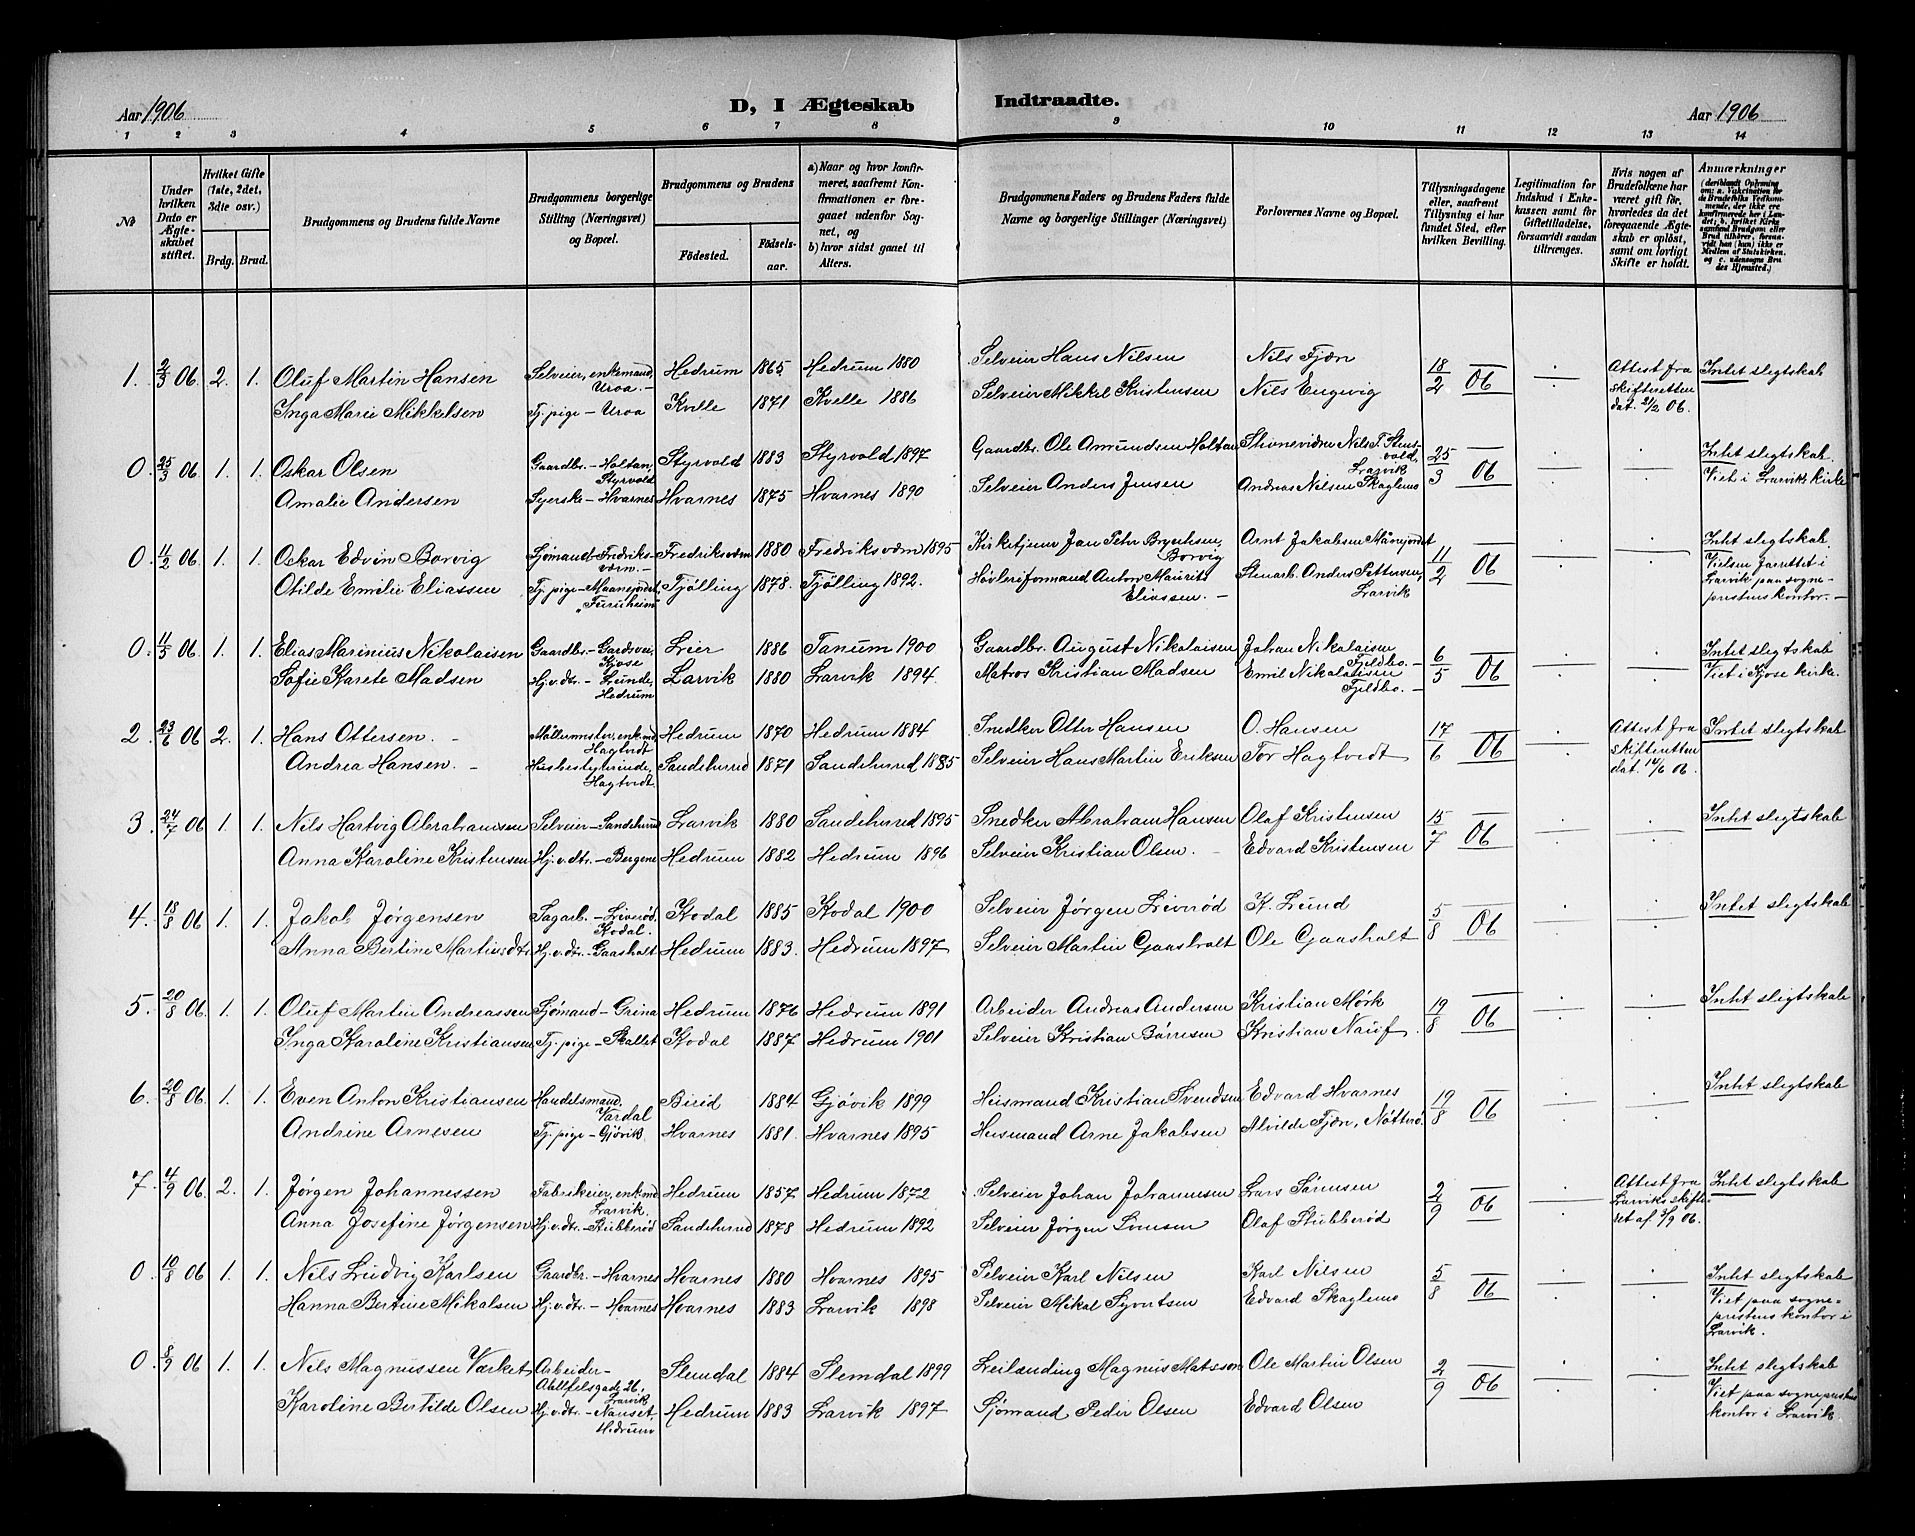 Aar 1906
D, I Ægteskab Indtraadte.
Aar 1906
1 2 3 4 5 6 7 8 9 10 11 12 13 14
№
Under hvilken Dato er Ægteskabet stiftet.
Hvilket Gifte (1ste, 2det, 3die osv.)
Brdg. Brud.
Brudgommens og Brudens fulde Navne
Brudgommens borgerlige Stilling (Næringsvei) og Bopæl.
Brudgommens og Brudens
Fødested. Fødselsaar.
a) Naar og hvor konfirmeret, saafremt Konfirmationen er foregaaet udenfor Sognet, og
b) hvor sidst gaaet til Alters.
Brudgommens Faders og Brudens Faders fulde Navne og borgerlige Stillinger (Næringsvei)
Forlovernes Navne og Bopæl.
Tillysningsdagene eller, saafremt Tillysning ei har fundet Sted, efter hvilken Bevilling.
Legitimation for Indskud i Enkekassen samt for Giftetilladelse, forsaavidt saadan tiltrænges.
Hvis nogen af Brudefolkene har været gift før, hvorledes da det foregaaende Ægteskab er opløst, samt om lovligt Skifte er holdt.
Anmærkninger
1. 2/3 06 2. 1. Oluf Martin Hansen Selveier, enkemand, Uroa. – Hedrum 1865 Hedrum 1880 Selveier Hans Nilsen Nils Fjøn 18/2 06 Attest fra skifteretten dat. 21/2 06. Intet slegtskab
Inga Marie Mikkelsen Tj. pige – Uroa Kvelle 1871 Kvelle 1886 Selveier Mikkel Kristensen Nils Engvig
0. 25/3 06 1. 1. Oskar Olsen Gaardbr. – Holtan, Styrvold Styrvold 1883 Styrvold 1897 Gaardbr. Ole Amundsen Holtan Nils T. Stensvold, Larvik 25/3 06 Intet slegtskab. Viet i Larvik kirke
Amalie Andersen Syerske – Hvarnes Hvarnes 1875 Hvarnes 1890 Selveier Anders Jensen Andreas Nilsen Skaglemo
0. 11/2 06 1. 1. Oskar Edvin Borvig Sjømand – Fredriksværn. – Fredriksværn 1880 Fredriksværn 1895 Kirketjener Jan Petter Borvig Arnt Jakobsen 11/2 06 Intet slegtskab. Vielsen forrettet i Larvik paa sogneprestens kontor. –
Otilde Emilie Eliassen Tj. pige – Maanejordet, "Furuheim" Tjølling 1878. Tjølling 1892. Høvleriformand Anton Maurits Eliassen. – Stenarb. Anders Pettersen, Larvik
0. 11/5 06 1. 1. Elias Marinius Nikolaisen Gaardbr. – Kjose Lier 1886 Tanum 1900 Gaardbr. August Nikolaisen Johan Nikolaisen Fjeldbo. – 6/5 06 Intet slegtskab Viet i Kjose kirke.
Sofie Karete Madsen Hj. v. dtr. – Lunde, Hedrum Larvik 1880 Larvik 1894. Matros Kristian Madsen Emil Nikolaisen Fjeldbo. –
2. 23/6 06 2. 1. Hans Ottersen. – Møllermester, enkmd Hagtvedt Hedrum 1870 Hedrum 1884 Snedker Otter Hansen O. Hansen 17/6 06 Attest fra skifteretten dat. 14/6 06. Intet slegtskab
Andrea Hansen. – Husbestyrerinde, Hagtvedt Sandeherred 1871 Sandeherred 1885 Selveier Hans Martin Eriksen Tor Hagtvedt
3. 24/7 06 1. 1. Nils Hartvig Abrahamsen Selveier – Sandeherred Larvik 1880 Sandeherred 1895 Snedker Abraham Hansen Olaf Kristensen 15/7 06 Intet slegtskab
Anna Karoline Kristensen Hj. v. dtr. – Bergene Hedrum 1882 Hedrum 1896 Selveier Kristian Olsen. Edvard Kristensen
4. 18/8 06 1. 1. Jakob Jørgensen Sagarb. – Liverød, Kodal. Kodal 1885 Kodal 1900 Selveier Jørgen Liverød K. Lund 5/8 06 Intet slegtskab
Anna Bertine Martinsdtr Hj. v. dtr. – Gaasholt Hedrum 1883. Hedrum 1897 Selveier Martin Gaasholt Ole Gaasholt
5. 20/8 06 1. 1. Oluf Martin Andreassen Sjømand – Grina Hedrum 1876 Hedrum 1891 Arbeider Andreas Andersen Kristian Mørk 19/8 06 Intet slegtskab
Inga Karoline Kristiansen Tj. pige – Skallet Kodal 1887 Hedrum 1901 Selveier Kristian Børresen Kristian Nauf
6. 20/8 06 1. 1. Even Anton Kristiansen Handelsmand, Vardal Birid 1884 Gjøvik 1899 Husmand Kristian Svendsen Edvard Hvarnes 19/8 06 Intet slegtskab
Andrine Arnesen Tj. pige – Gjøvik Hvarnes 1881. Hvarnes 1895 Husmand Arne Jakobsen Alvilde Fjøn, Nøtterø.
7. 4/9 06 2. 1. Jørgen Johannessen Fabrikeier, enkmd Larvik. Hedrum 1857 Hedrum 1872 Selveier Johan Johannesen Lars Sørensen 2/9 06 Attest fra Larviks skifteret af 3/9 06. Intet slegtskab
Anna Josefine Jørgensen Hj. v. dtr. – Stubberød Sandeherred 1878 Hedrum 1892 Selveier Jørgen Olaf Stubberød
0. 10/8 06 1. 1. Nils Ludvig Karlsen Gaardbr. – Hvarnes Hvarnes 1880 Hvarnes 1895 Selveier Karl Nilsen Karl Nilsen 5/8 06 Intet slegtskab Viet paa sogneprestens kontor i Larvik.
Hanna Bertine Mikalsen Hj. v. dtr. – Hvarnes Hvarnes 1883 Larvik 1898 Selveier Mikal Syvertsen Edvard Skaglemo
0. 8/9 06 1. 1. Nils Magnussen Værket Arbeider – 26. Larvik Slemdal 1884 Slemdal 1899 Leilænding Magnus Matsson Ole Martin Olsen 2/9 06 Intet slegtskab Viet paa sogneprestens kontor i Larvik
Karoline Bertilde Olsen Hj. v. dtr. – Nanset, Hedrum Hedrum 1883 Larvik 1897 Sjømand Peder Olsen Edvard Olsen